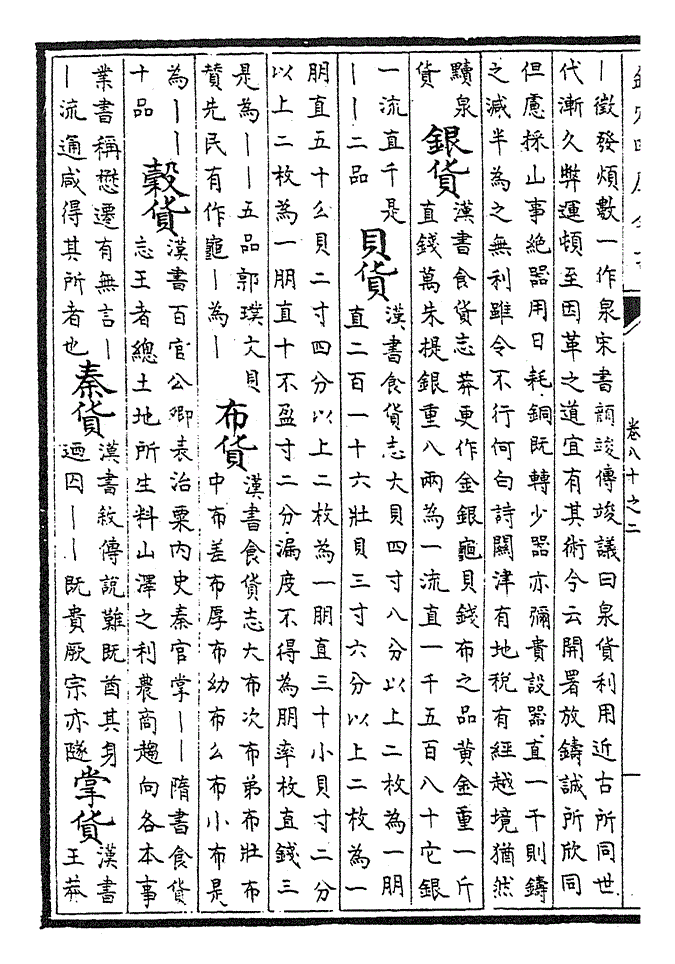 卷八十之二
一
｜徵發煩數一作泉宋書顔竣傳竣議曰泉貨利用近古所同世
代漸久弊運頓至因革之道宜有其術今云開署放鑄誠所欣同
但慮採山事絶器用日耗銅既轉少器亦彌貴設器直一千則鑄
之減半為之無利雖令不行何白詩關津有地税有經越境猶然
黷泉
貨
銀貨
漢書食貨志莽更作金銀龜貝錢布之品黄金重一斤
直錢萬朱提銀重八兩為一流直一千五百八十它銀
一流直千是
｜｜二品
貝貨
漢書食貨志大貝四寸八分以上二枚為一朋
直二百一十六壯貝三寸六分以上二枚為一
朋直五十么貝二寸四分以上二枚為一朋直三十小貝寸二分
以上二枚為一朋直十不盈寸二分漏度不得為朋率枚直錢三
是為｜｜五品郭璞文貝
贊先民有作龜｜為｜
布貨
漢書食貨志大布次布弟布壯布
中布差布厚布幼布么布小布是
為｜｜
十品
穀貨
漢書百官公卿表治粟内史秦官掌｜｜隋書食貨
志王者總土地所生料山澤之利農商趨向各本事
業書稱懋遷有無言｜
｜流通咸得其所者也
秦貨
漢書敘傳說難既酋其身
迺囚｜｜既貴厥宗亦隧
掌貨
漢書
王莽